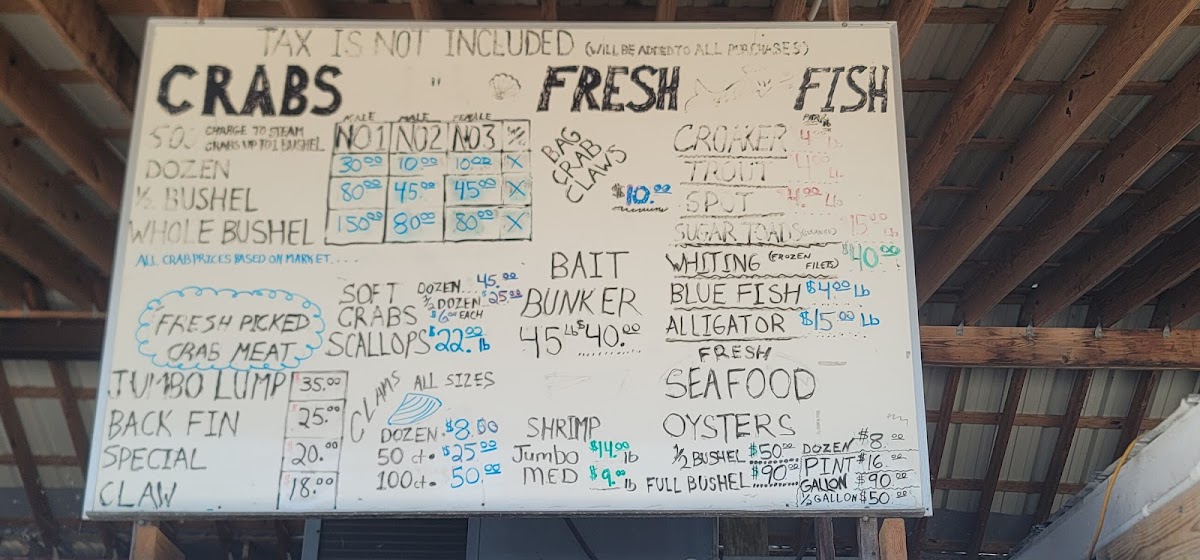 TAX IS NOT INCLUDED (WILL BE ADDED TO ALL PURCHASES)
CRABS
CHARGE TO STEAM
CRABS UP TO 1 BUSHEL
MALE MALE FEMALE
NO1 NO2 NO3
DOZEN 30.00 10.00 10.00 X
1/2 BUSHEL 80.00 45.00 45.00 X
WHOLE BUSHEL 150.00 80.00 80.00 X
ALL CRAB PRICES BASED ON MARKET....
FRESH PICKED
CRAB MEAT
JUMBO LUMP 35.00
BACK FIN 25.00
SPECIAL 20.00
CLAW 18.00
SOFT
CRABS
DOZEN... 45.00
1/2 DOZEN $25.00
$6.00 EACH
SCALLOPS $22.00 lb
CLAMS ALL SIZES
DOZEN. $8.00
50 ct. $25.00
100ct. 50.00
FRESH FISH
BAG
CRAB
CLAWS
$10.00
BAIT
BUNKER
45 LB $40.00
SHRIMP
Jumbo $14.00 lb
MED $9.00 lb
CROAKER
TROUT Lb
SPOT Lb
SUGAR TOADS 15.00 Lb
WHITING (FROZEN FILETS) $40.00
BLUE FISH $4.00 Lb
ALLIGATOR $15.00 Lb
FRESH
SEAFOOD
OYSTERS
1/2 BUSHEL $50.00
FULL BUSHEL $90.00
DOZEN $8.00
PINT $16.00
GALLON $90.00
1/2 GALLON $50.00